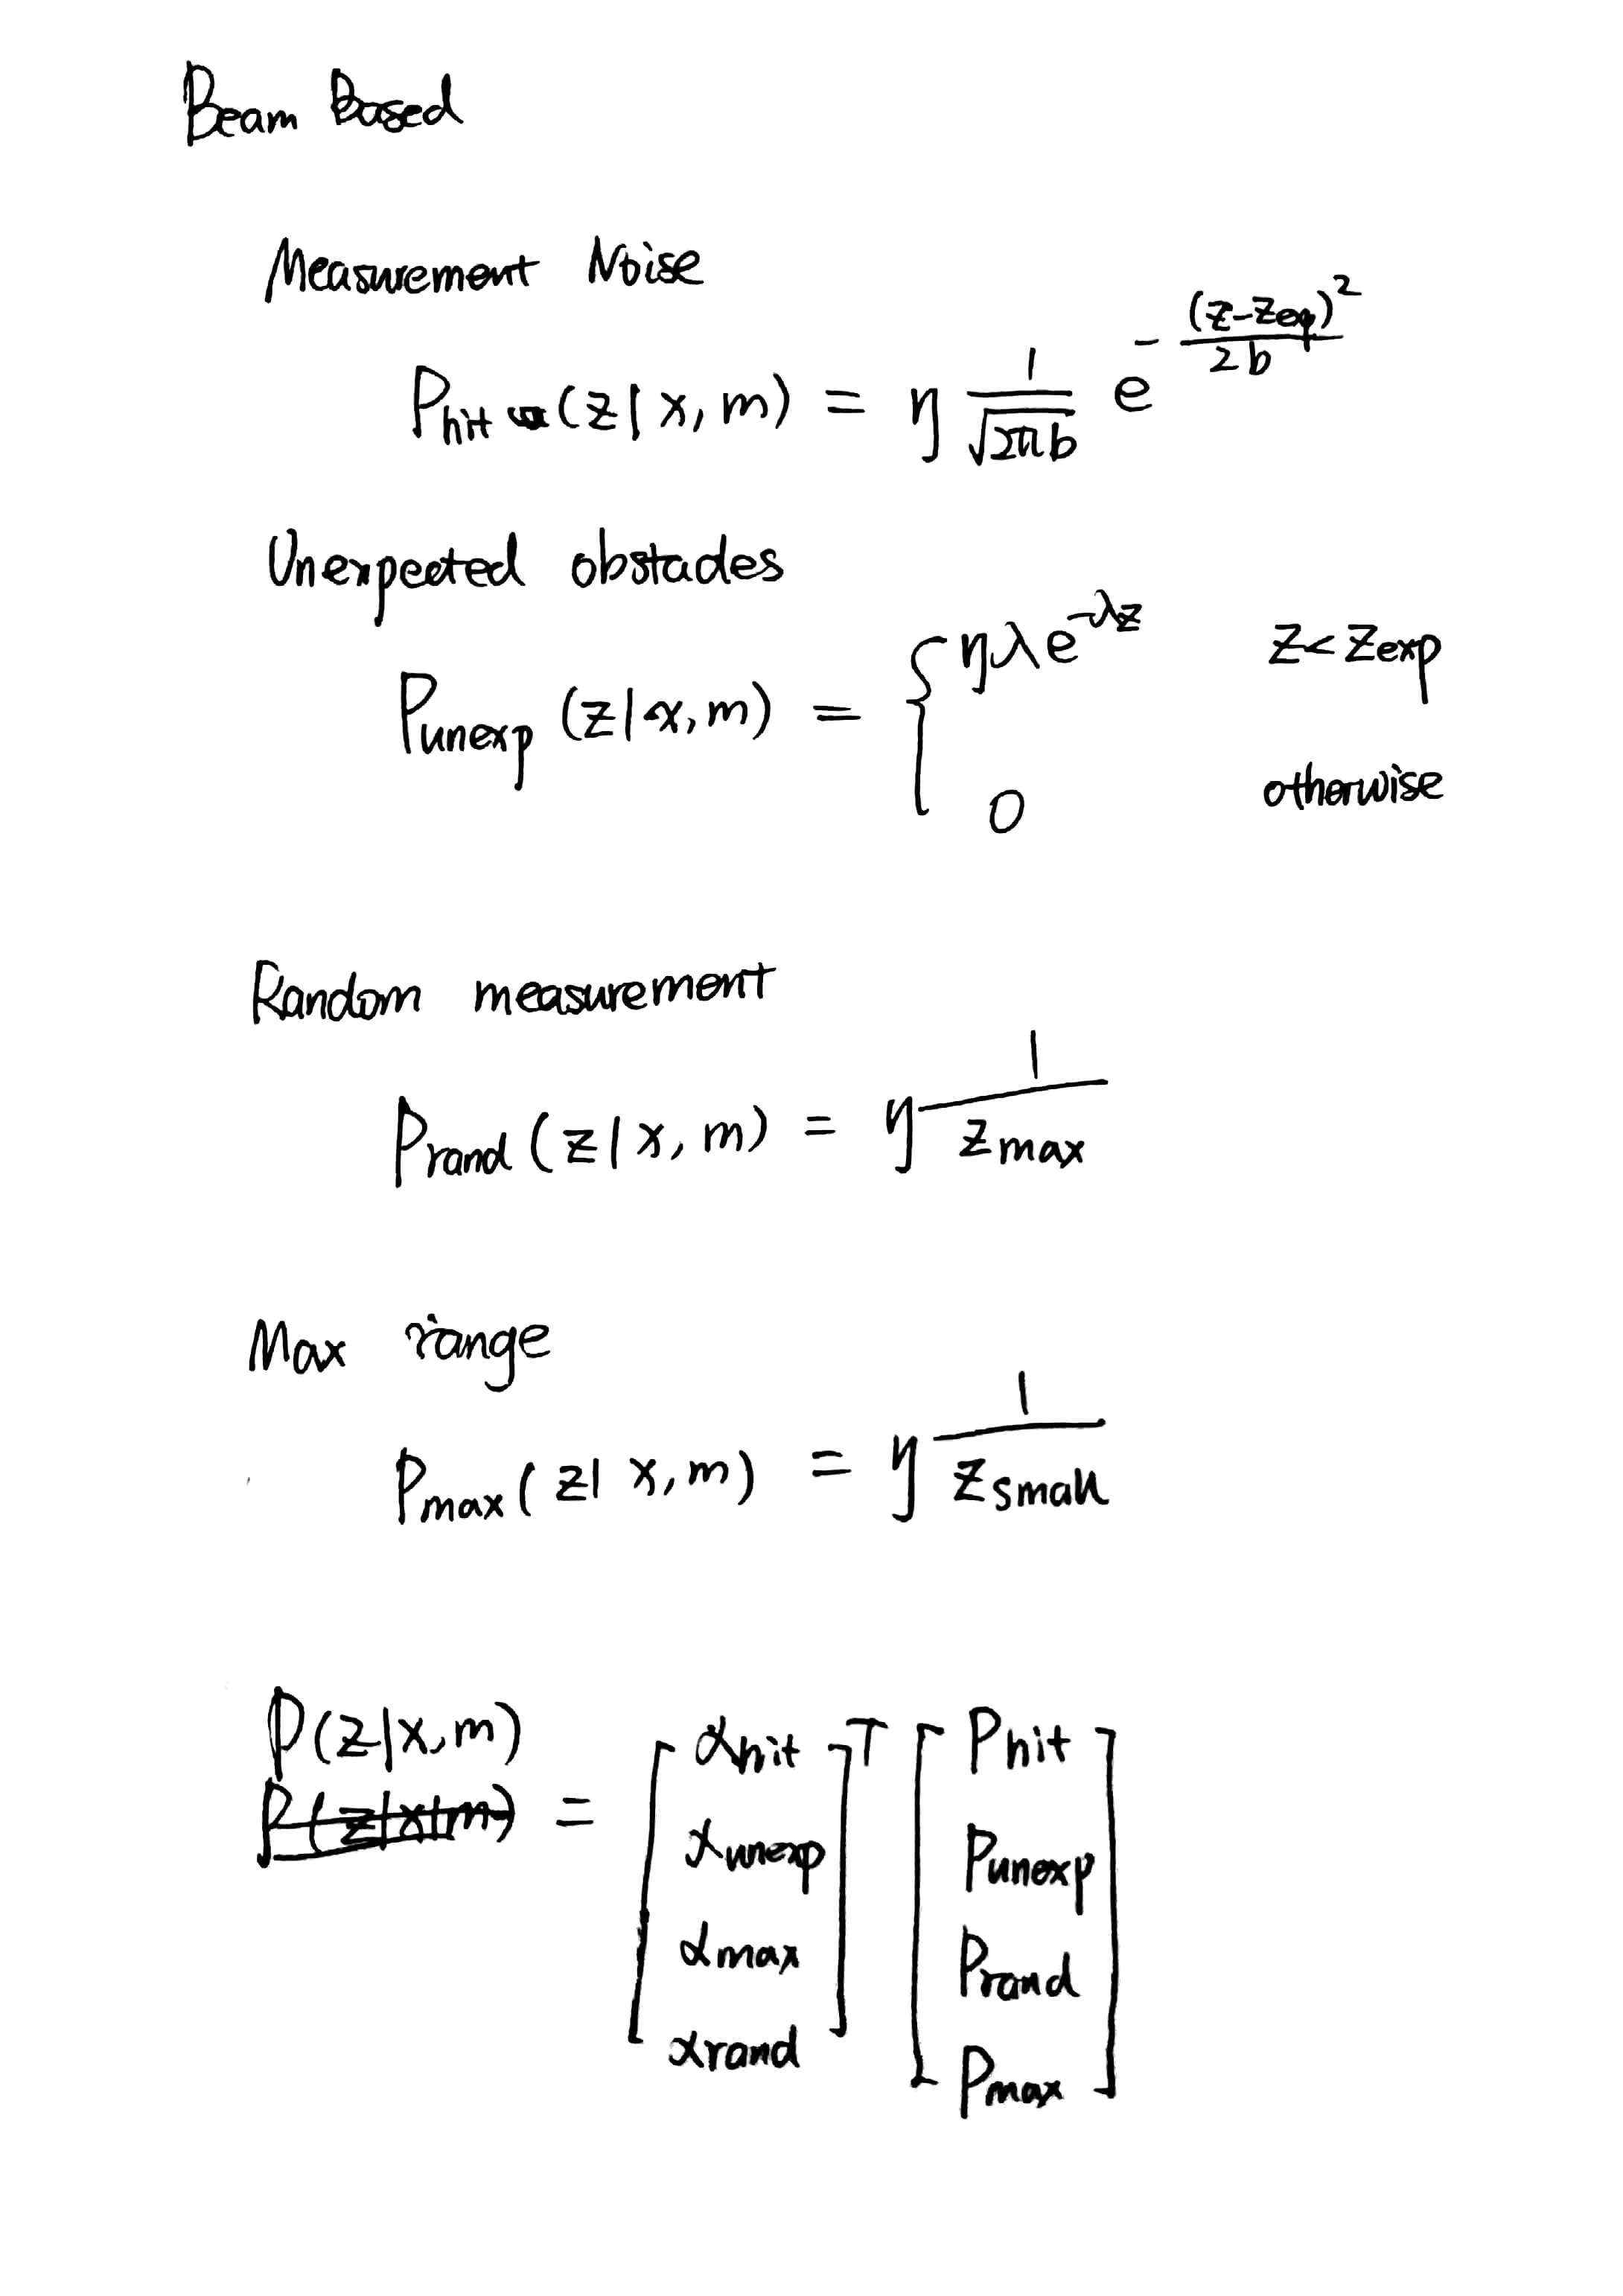 Beam Based
Measurement Noise
P_hit (z | x, m) = η \frac{1}{\sqrt{2πb}} e^{-\frac{(z-z_{exp})^2}{2b}}
Unexpected obstacles
P_unexp (z | x, m) = { ηλe^{-λz} z < z_exp
0 otherwise
Random measurement
P_rand (z | x, m) = η \frac{1}{z_{max}}
Max range
P_max (z | x, m) = η \frac{1}{z_{small}}
P(z | x, m)
P(z | x | m) = [α_hit α_unexp α_max α_rand]^T [P_hit P_unexp P_rand P_max]